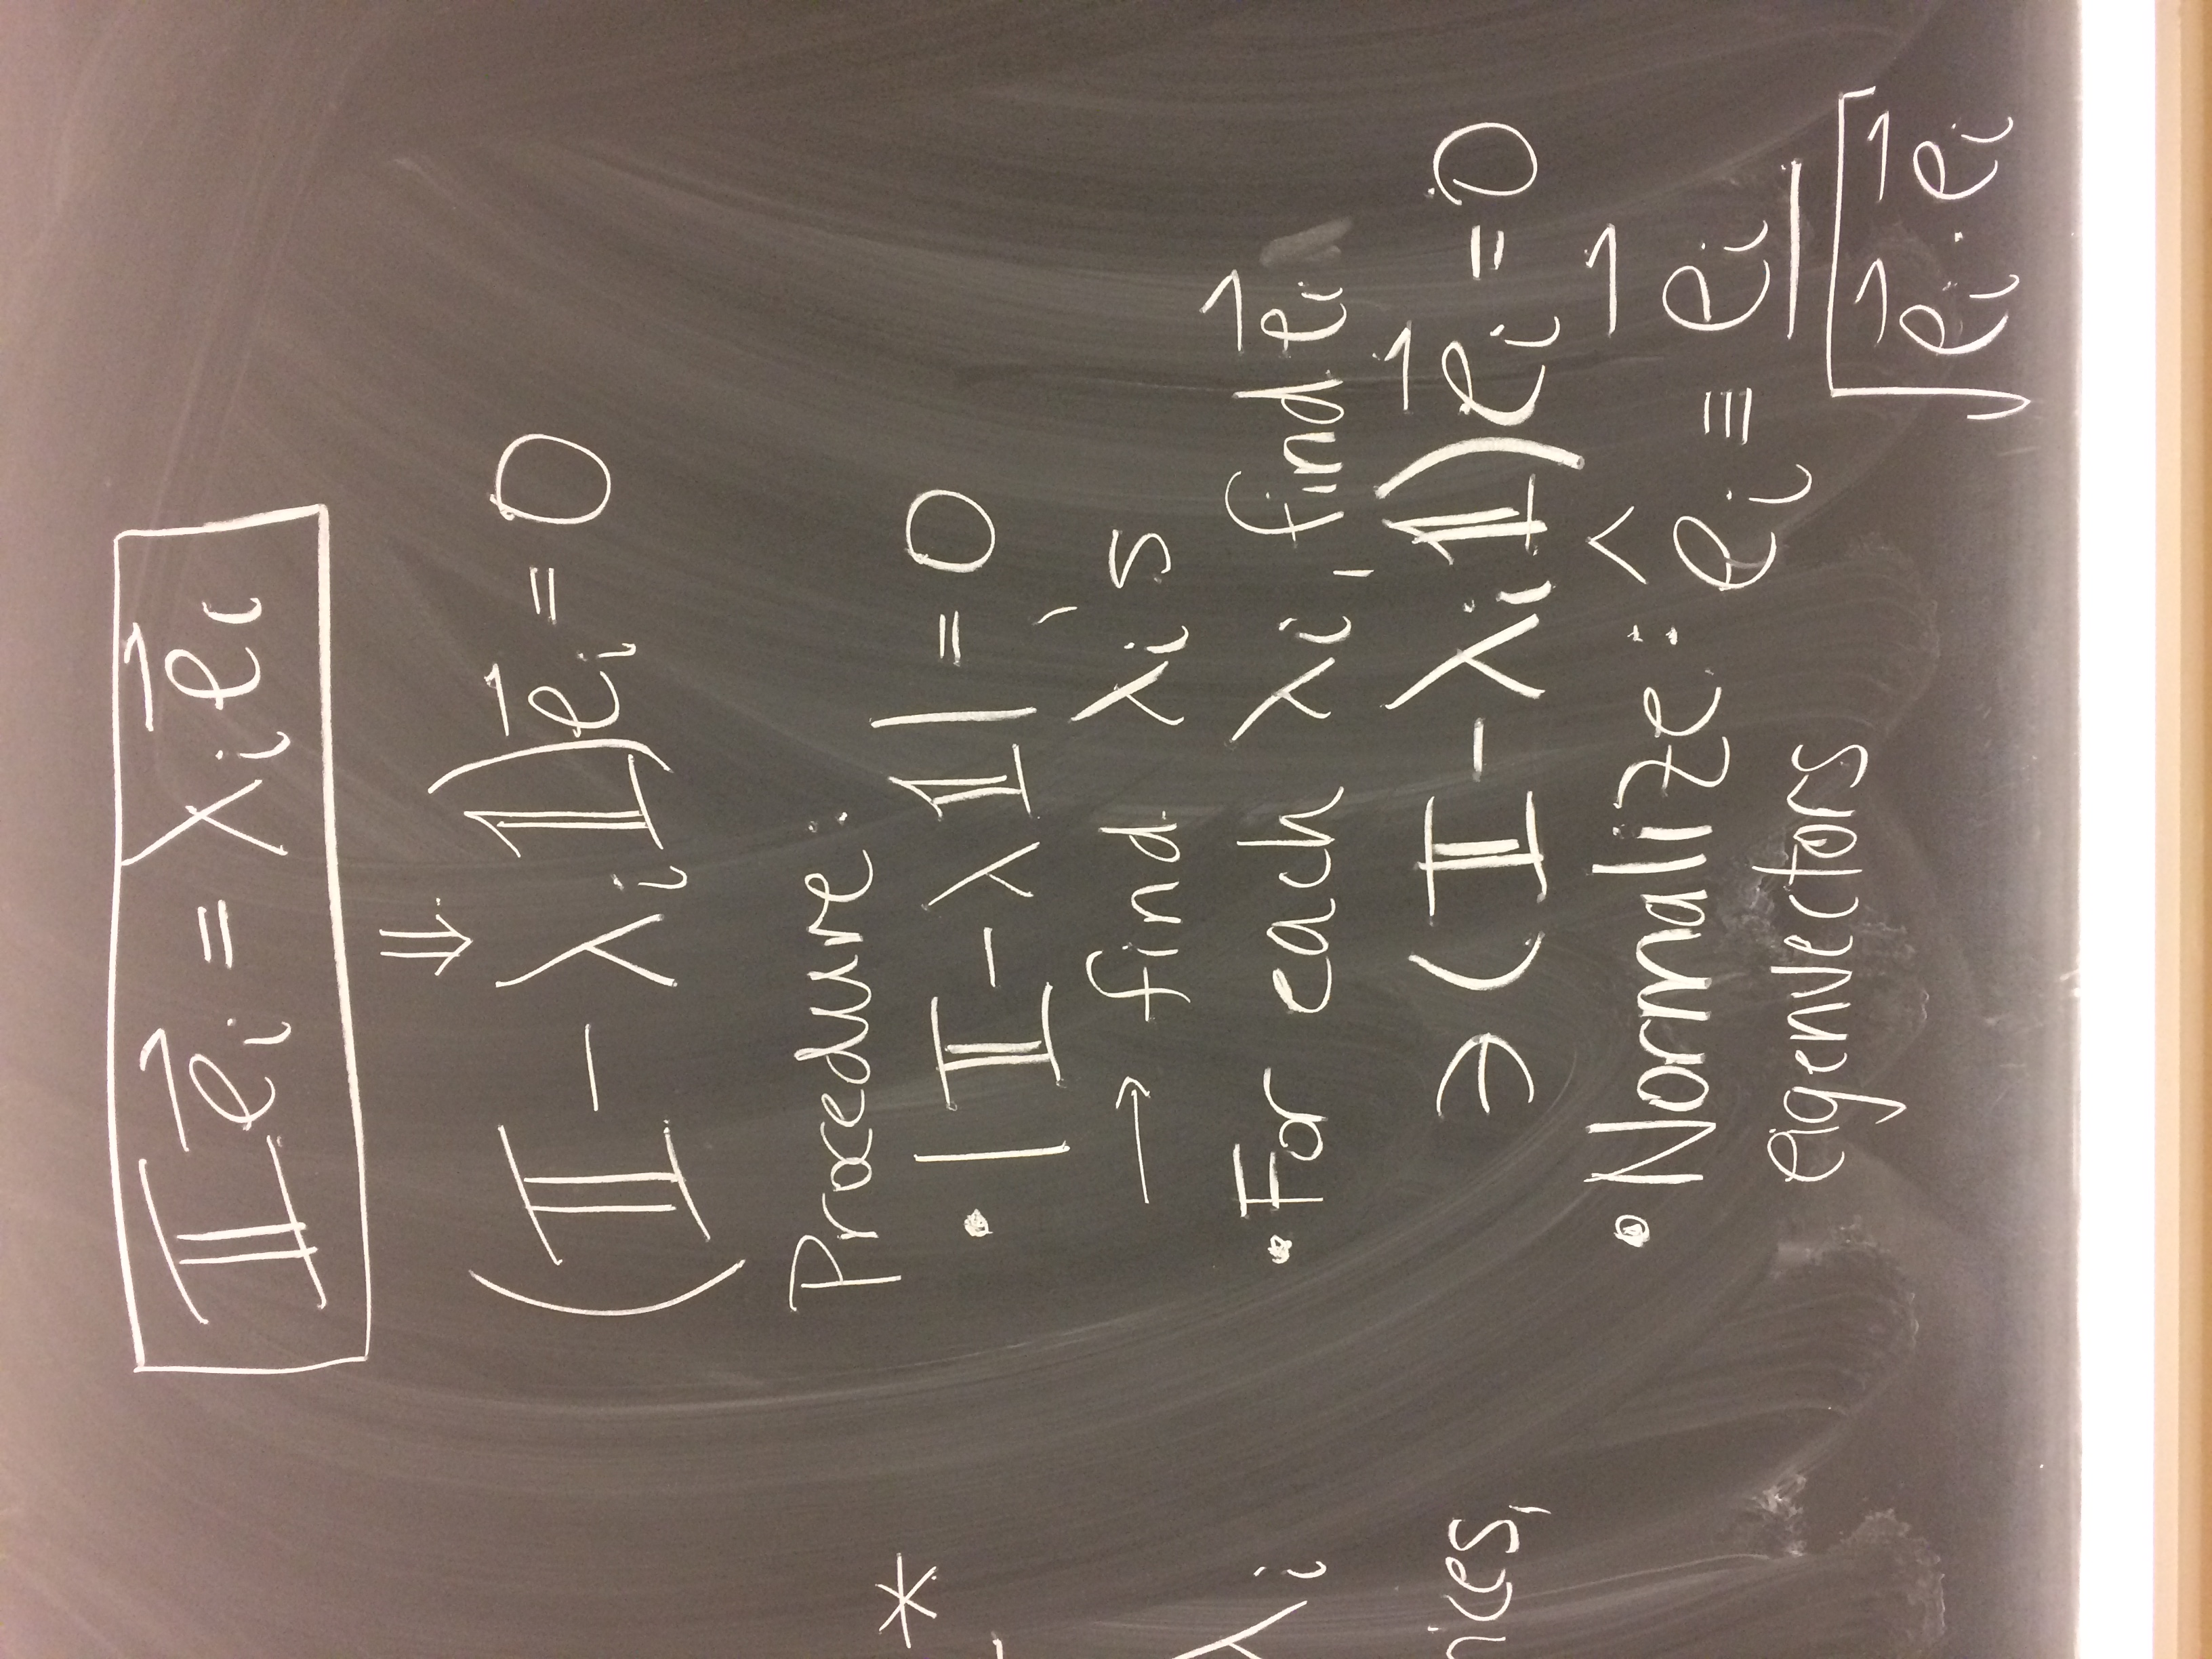 𝕀e⃗ᵢ = λᵢe⃗ᵢ
⇓
(𝕀 − λᵢ𝟙)e⃗ᵢ = 0
Procedure:
• |𝕀 − λ𝟙| = 0
→ find λᵢ's
• For each λᵢ, find e⃗ᵢ
∋ (𝕀 − λᵢ𝟙)e⃗ᵢ = 0
• Normalize: êᵢ ≡ e⃗ᵢ / √(e⃗ᵢ·e⃗ᵢ)
eigenvectors
*
λᵢ